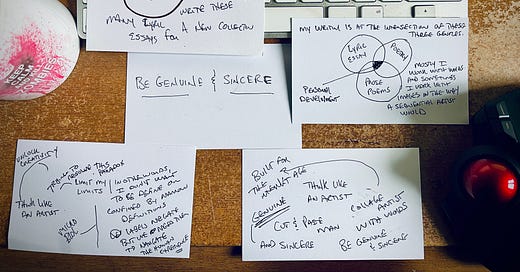 WRITE THESE
MANY LYRIC
ESSAYS FOR A NEW COLLECTION
MY WRITING IS AT THE INTERSECTION OF THESE
THREE GENRES.
LYRIC
ESSAY
POETRY
PROSE
POEMS
PERSONAL
DEVELOPMENT
MOSTLY I
WORK WITH WORDS
AND SOMETIMES
I WORK WITH
IMAGES IN THE WAY
A SEQUENTIAL ARTIST
WOULD
BE GENUINE & SINCERE
UNLOCK
CREATIVITY
TRYING TO
RESOLVE THIS PARADOX
LIMIT MY
LIMITS
THINK LIKE
AN ARTIST
MICRO
BIDL
IN OTHER WORDS
I DON'T WANT
TO BE DEFINED OR
CONFINED BY
DEFINITIONS
LABELS NEGATE
BUT WE
TO NAVIGATE
THE HUMAN
EXPERIENCE
BUILT FOR
THE
AGE
THINK LIKE
AN ARTIST
GENUINE
AND SINCERE
CUT & PASTE
MAN WITH WORDS
COLLAGE ARTIST
BE GENUINE
& SINCERE
ZOMBIES